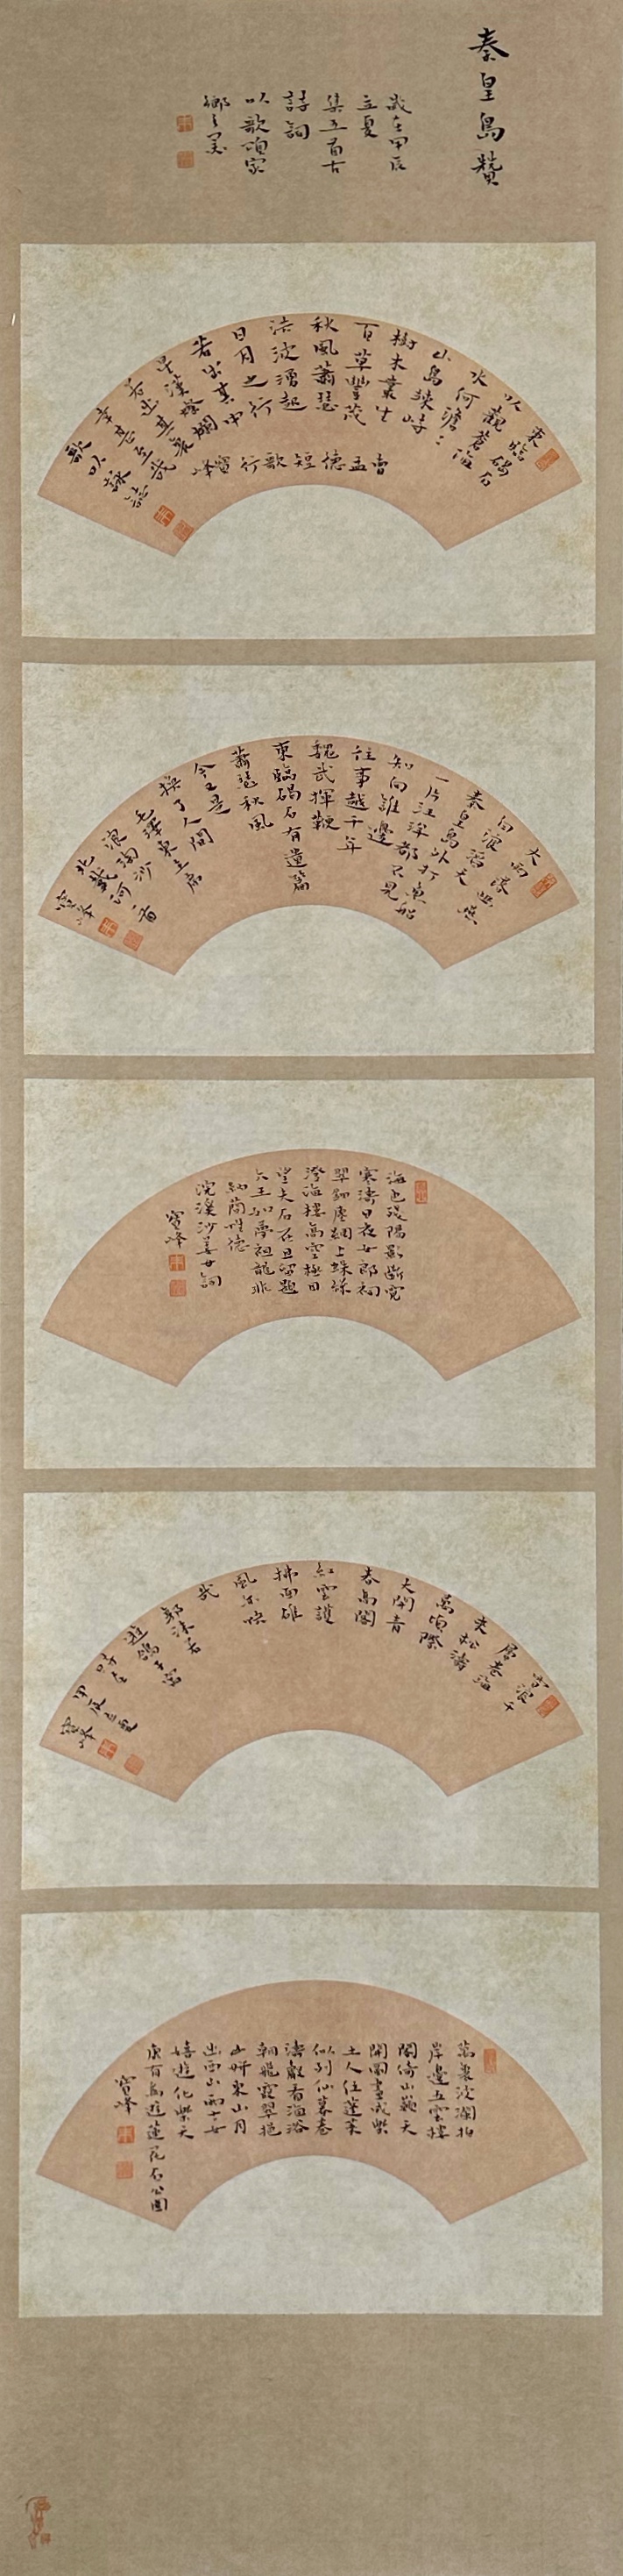 秦皇島贊
歲在甲辰
立夏
集五首古
詩詞
以歌頌家
鄉之美
東臨碣石
以觀滄海
水何澹：
山島竦峙
樹木叢生
百草豐茂
秋風蕭瑟
洪波湧起
日月之行
若出其中
星漢燦爛
若出其裏
幸甚至哉
歌以詠志
曹孟德短歌行
寶峰
大雨落幽燕
白浪滔天
秦皇島外打魚船
一片汪洋都不見
知向誰邊
往事越千年
魏武揮鞭
東臨碣石有遺篇
蕭瑟秋風
今又是
換了人間
毛澤東主席
浪淘沙一首
北戴河
寶峰
海色殘陽影斷霓
寒濤日夜女郎祠
翠鈿塵網上蛛絲
澄海樓高空極目
望夫石在且留題
六王如夢祖龍非
納蘭性德
浣溪沙姜女祠
寶峰
雪浪千
層卷海
來松濤
萬頃際
天開青
春島閣
紅雲護
拂面雄
風亦快
哉
郭沫若
遊鴿子窩
時在
甲辰立夏
寶峰
萬疊波瀾拍
岸邊五雲樓
閣倚山巔天
開圖畫成樂
土人住蓬萊
似列仙暮卷
濤聲看海浴
朝飛霞翠挹
山妍東山月
出西山雨士女
嬉遊化樂天
康有為遊蓮花石公園
寶峰